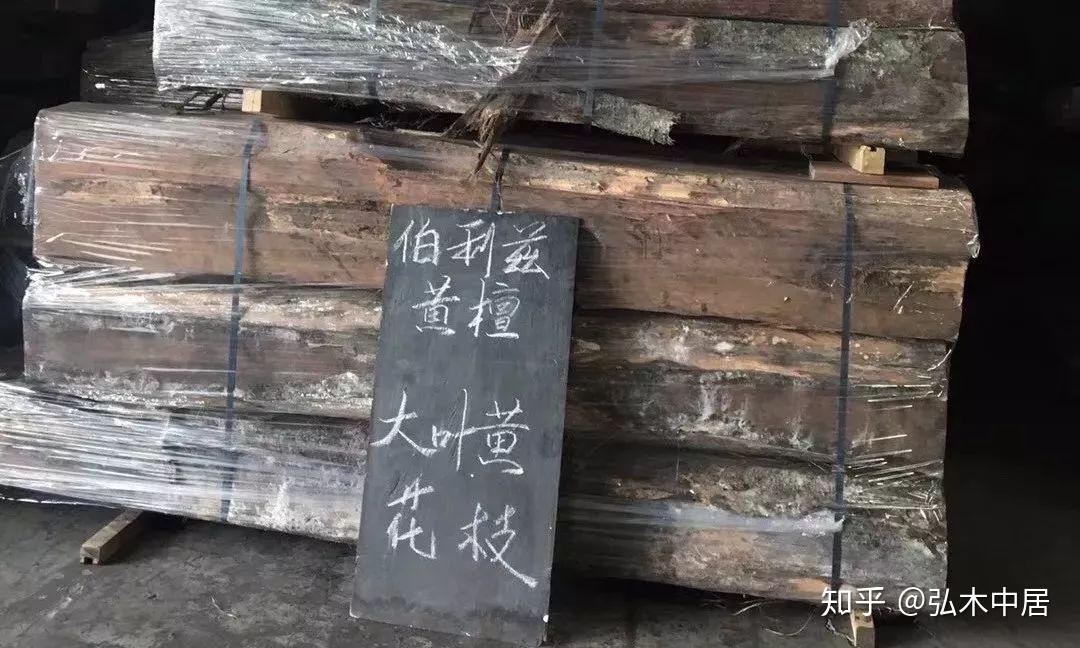 伯利兹
黄檀
大叶黄
花枝
知乎 @弘木中居